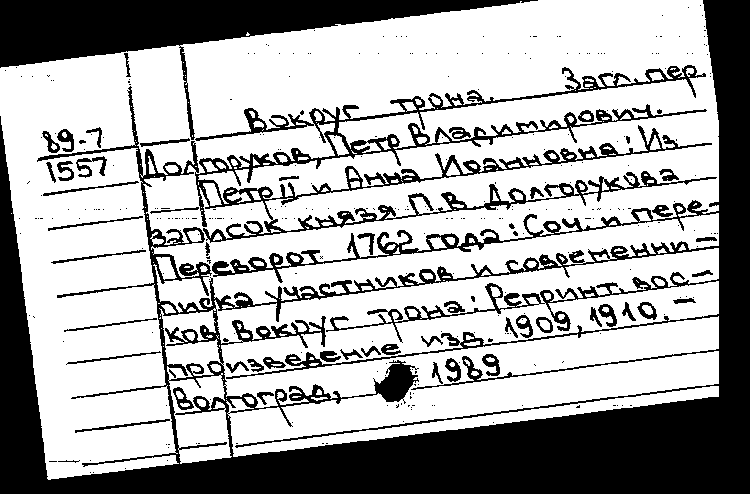 Вокруг трона. Загл. пер.
89-7
1557
Долгоруков, Петр Владимирович.
Петр II и Анна Иоанновна: Из
записок князя П.В. Долгорукова.
Переворот 1762 года: Соч. и пере-
писка участников и современни-
ков. Вокруг трона: Репринт. вос-
произведение изд. 1909, 1910. –
Волгоград, 1989.